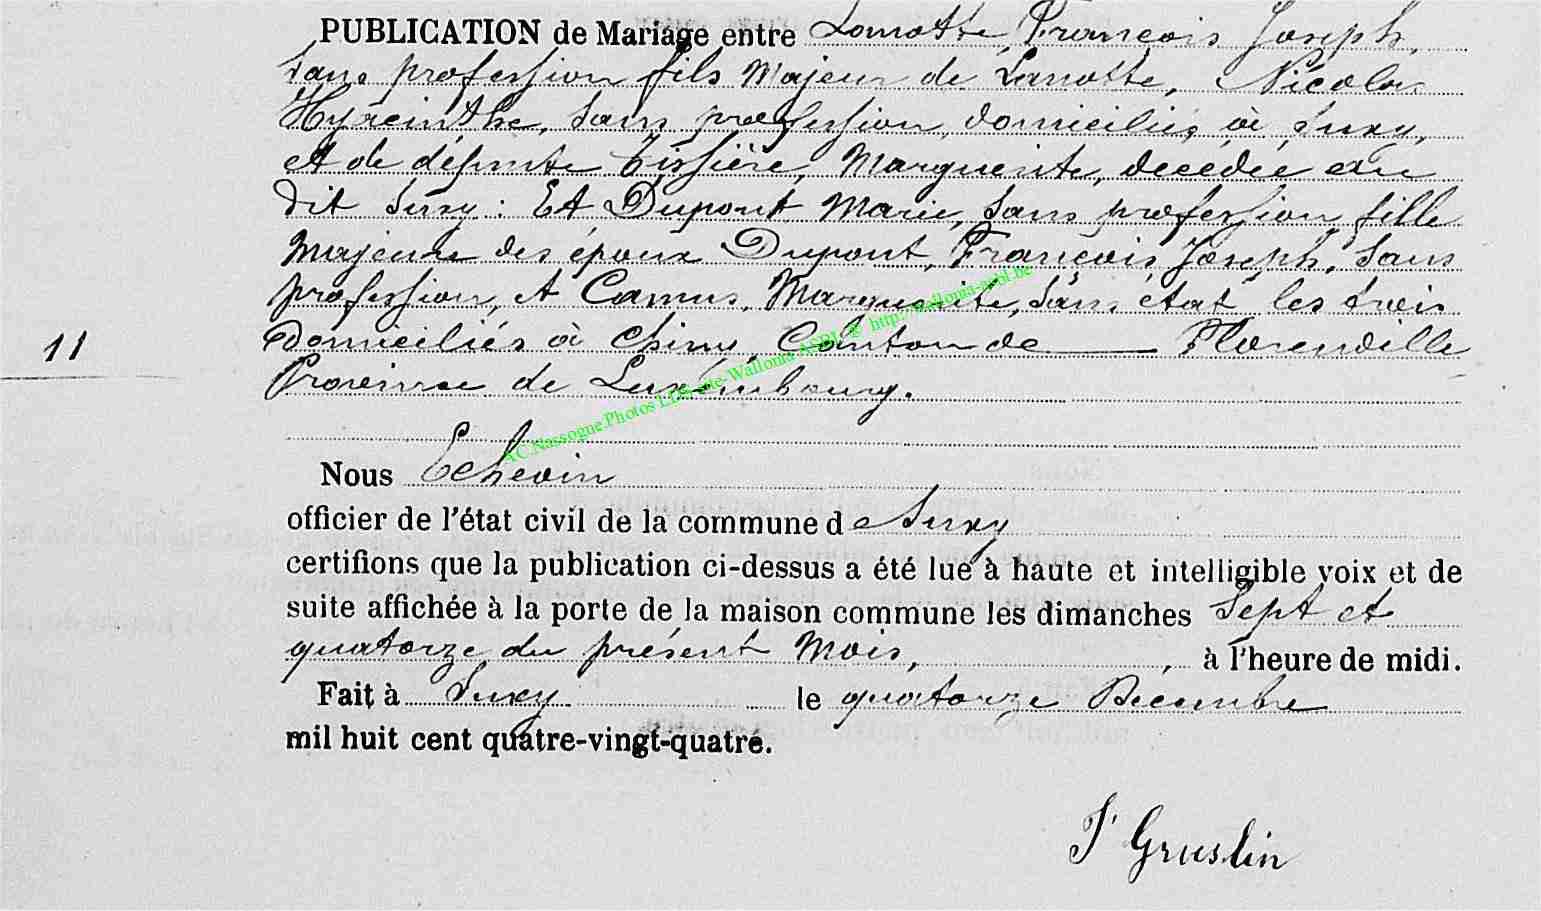 PUBLICATION de Mariage entre Lamotte, François Joseph,
sans profession fils Majeur de Lamotte, Nicolas
Hyacinthe, sans profession, domiciliés à Suxy,
et de défunte Tissière, Marguerite, décédée au
dit Suxy : Et Dupont Marie, sans profession, fille
Majeure des époux Dupont, François, Joseph, sans
profession, et Camus, Marguerite, sans état, les trois
domiciliés à Chiny, Canton de Florenville
11
Province de Luxembourg.
AC.Nassogne.Photos LDS site-Wallonia ASBL @ http://wallonia-asbl.be
Nous Echevin
officier de l'état civil de la commune de Suxy
certifions que la publication ci-dessus a été lue à haute et intelligible voix et de
suite affichée à la porte de la maison commune les dimanches Sept et
quatorze du présent Mois, , à l'heure de midi.
Fait à Suxy le quatorze Décembre
mil huit cent quatre-vingt-quatre.
J Gruslin